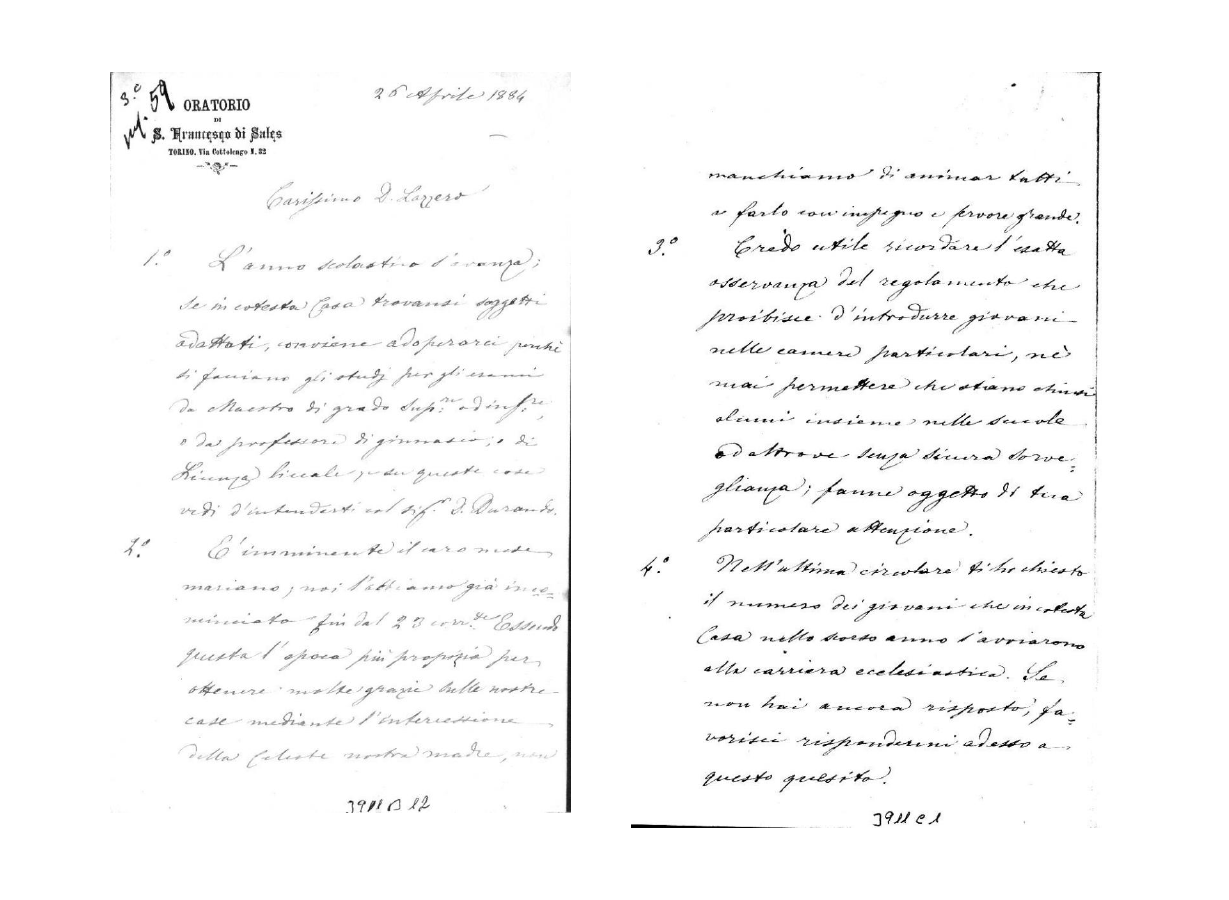 3.º
59
ORATORIO
DI
S. Francesco di Sales
TORINO, Via Cottolengo N. 32
26 Aprile 1884
Carissimo D. Lazzero
1.º L'anno scolastico s'avanza;
se in cotesta Casa trovansi soggetti
adattati, conviene adoperarci perchè
si facciano gli studj per gli esami
da Maestro di grado Sup.re od inf.re,
o da professore di ginnasio, o di
Licenza liceale; su queste cose
vedi d'intenderti col Sig. D. Durando.
2.º E' imminente il caro mese
mariano; noi l'abbiamo già inco=
minciato fin dal 23 corr.te Essendo
questa l'epoca più propizia per
ottenere molte grazie sulle nostre
case mediante l'intercessione
della Celeste nostra madre, non
3911 B 12
manchiamo di animar tutti
a farlo con impegno e fervore grande.
3.º Credo utile ricordare l'esatta
osservanza del regolamento che
proibisce d'introdurre giovani
nelle camere particolari, nè
mai permettere che stiano chiusi
alunni insieme nelle scuole
od altrove senza sicura sorve=
glianza; fanne oggetto di tua
particolare attenzione.
4.º Nell'ultima circolare ti ho chiesto
il numero dei giovani che in cotesta
Casa nello scorso anno s'avviarono
alla carriera ecclesiastica. Se
non hai ancora risposto, fa=
vorisci rispondermi adesso a
questo quesito.
3911 C 1